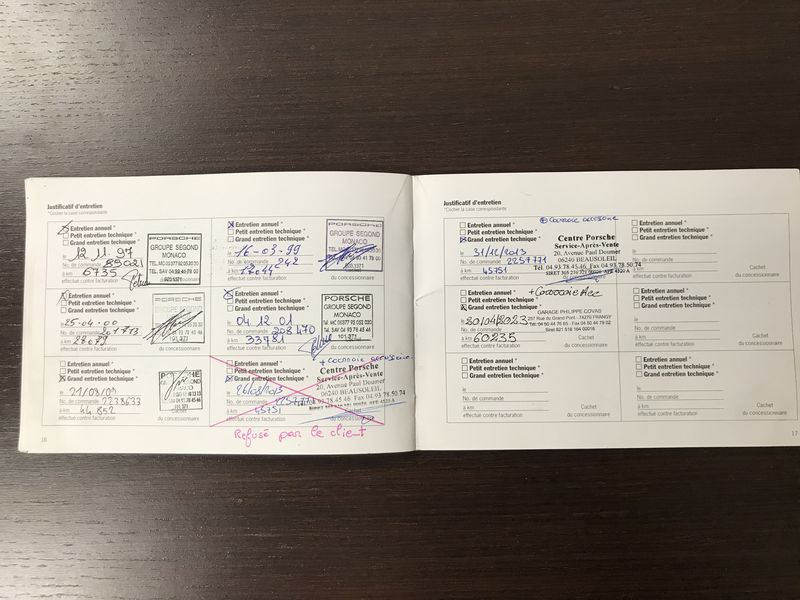 Justificatif d'entretien
*Cocher la case correspondante
Entretien annuel *
Petit entretien technique *
Grand entretien technique *
le 12.11.97
No. de commande
à km 6735
effectué contre facturation
PORSCHE
GROUPE SEGOND
MONACO
du concessionnaire
Entretien annuel *
Petit entretien technique *
Grand entretien technique *
le 16-03-99
No. de commande 242
à km
effectué contre facturation
PORSCHE
GROUPE SEGOND
MONACO
du concessionnaire
Entretien annuel *
Petit entretien technique *
Grand entretien technique *
le 25-04-00
No. de commande
à km 28079
effectué contre facturation
PORSCHE
du concessionnaire
Entretien annuel *
Petit entretien technique *
Grand entretien technique *
le 04 12 01
No. de commande 208470
à km 33781
effectué contre facturation
PORSCHE
GROUPE SEGOND
MONACO
du concessionnaire
Entretien annuel *
Petit entretien technique *
Grand entretien technique *
le 21/09/09
No. de commande 2238633
à km 44.852
effectué contre facturation
du concessionnaire
+ courroie accessoire
Entretien annuel *
Petit entretien technique *
Grand entretien technique *
No. de commande
à km 45751
effectué contre facturation
Centre Porsche
Service-Après-Vente
20, Avenue Paul Doumer
06240 BEAUSOLEIL
Cachet
du concessionnaire
Refusé par le client
16
Justificatif d'entretien
*Cocher la case correspondante
+ courroie accessoire
Entretien annuel *
Petit entretien technique *
Grand entretien technique *
le 31/12/2013
No. de commande 2257771
à km 45751
effectué contre facturation
Centre Porsche
Service-Après-Vente
20, Avenue Paul Doumer
06240 BEAUSOLEIL
Tél. 04.93.78.45.46, Fax 04.93.78.50.74
Entretien annuel *
Petit entretien technique *
Grand entretien technique *
le
No. de commande
à km
effectué contre facturation
Cachet
du concessionnaire
+ Courroie Acc
Entretien annuel *
Petit entretien technique *
Grand entretien technique *
le 30/04/2023
No. de commande
à km 60235
effectué contre facturation
GARAGE PHILIPPE COVAS
257 Rue du Grand Pont - 74270 FRANGY
Tél. 04 50 44 76 65 - Fax 04 50 44 79 02
du concessionnaire
Entretien annuel *
Petit entretien technique *
Grand entretien technique *
le
No. de commande
à km
effectué contre facturation
Cachet
du concessionnaire
Entretien annuel *
Petit entretien technique *
Grand entretien technique *
le
No. de commande
à km
effectué contre facturation
Cachet
du concessionnaire
Entretien annuel *
Petit entretien technique *
Grand entretien technique *
le
No. de commande
à km
effectué contre facturation
Cachet
du concessionnaire
17